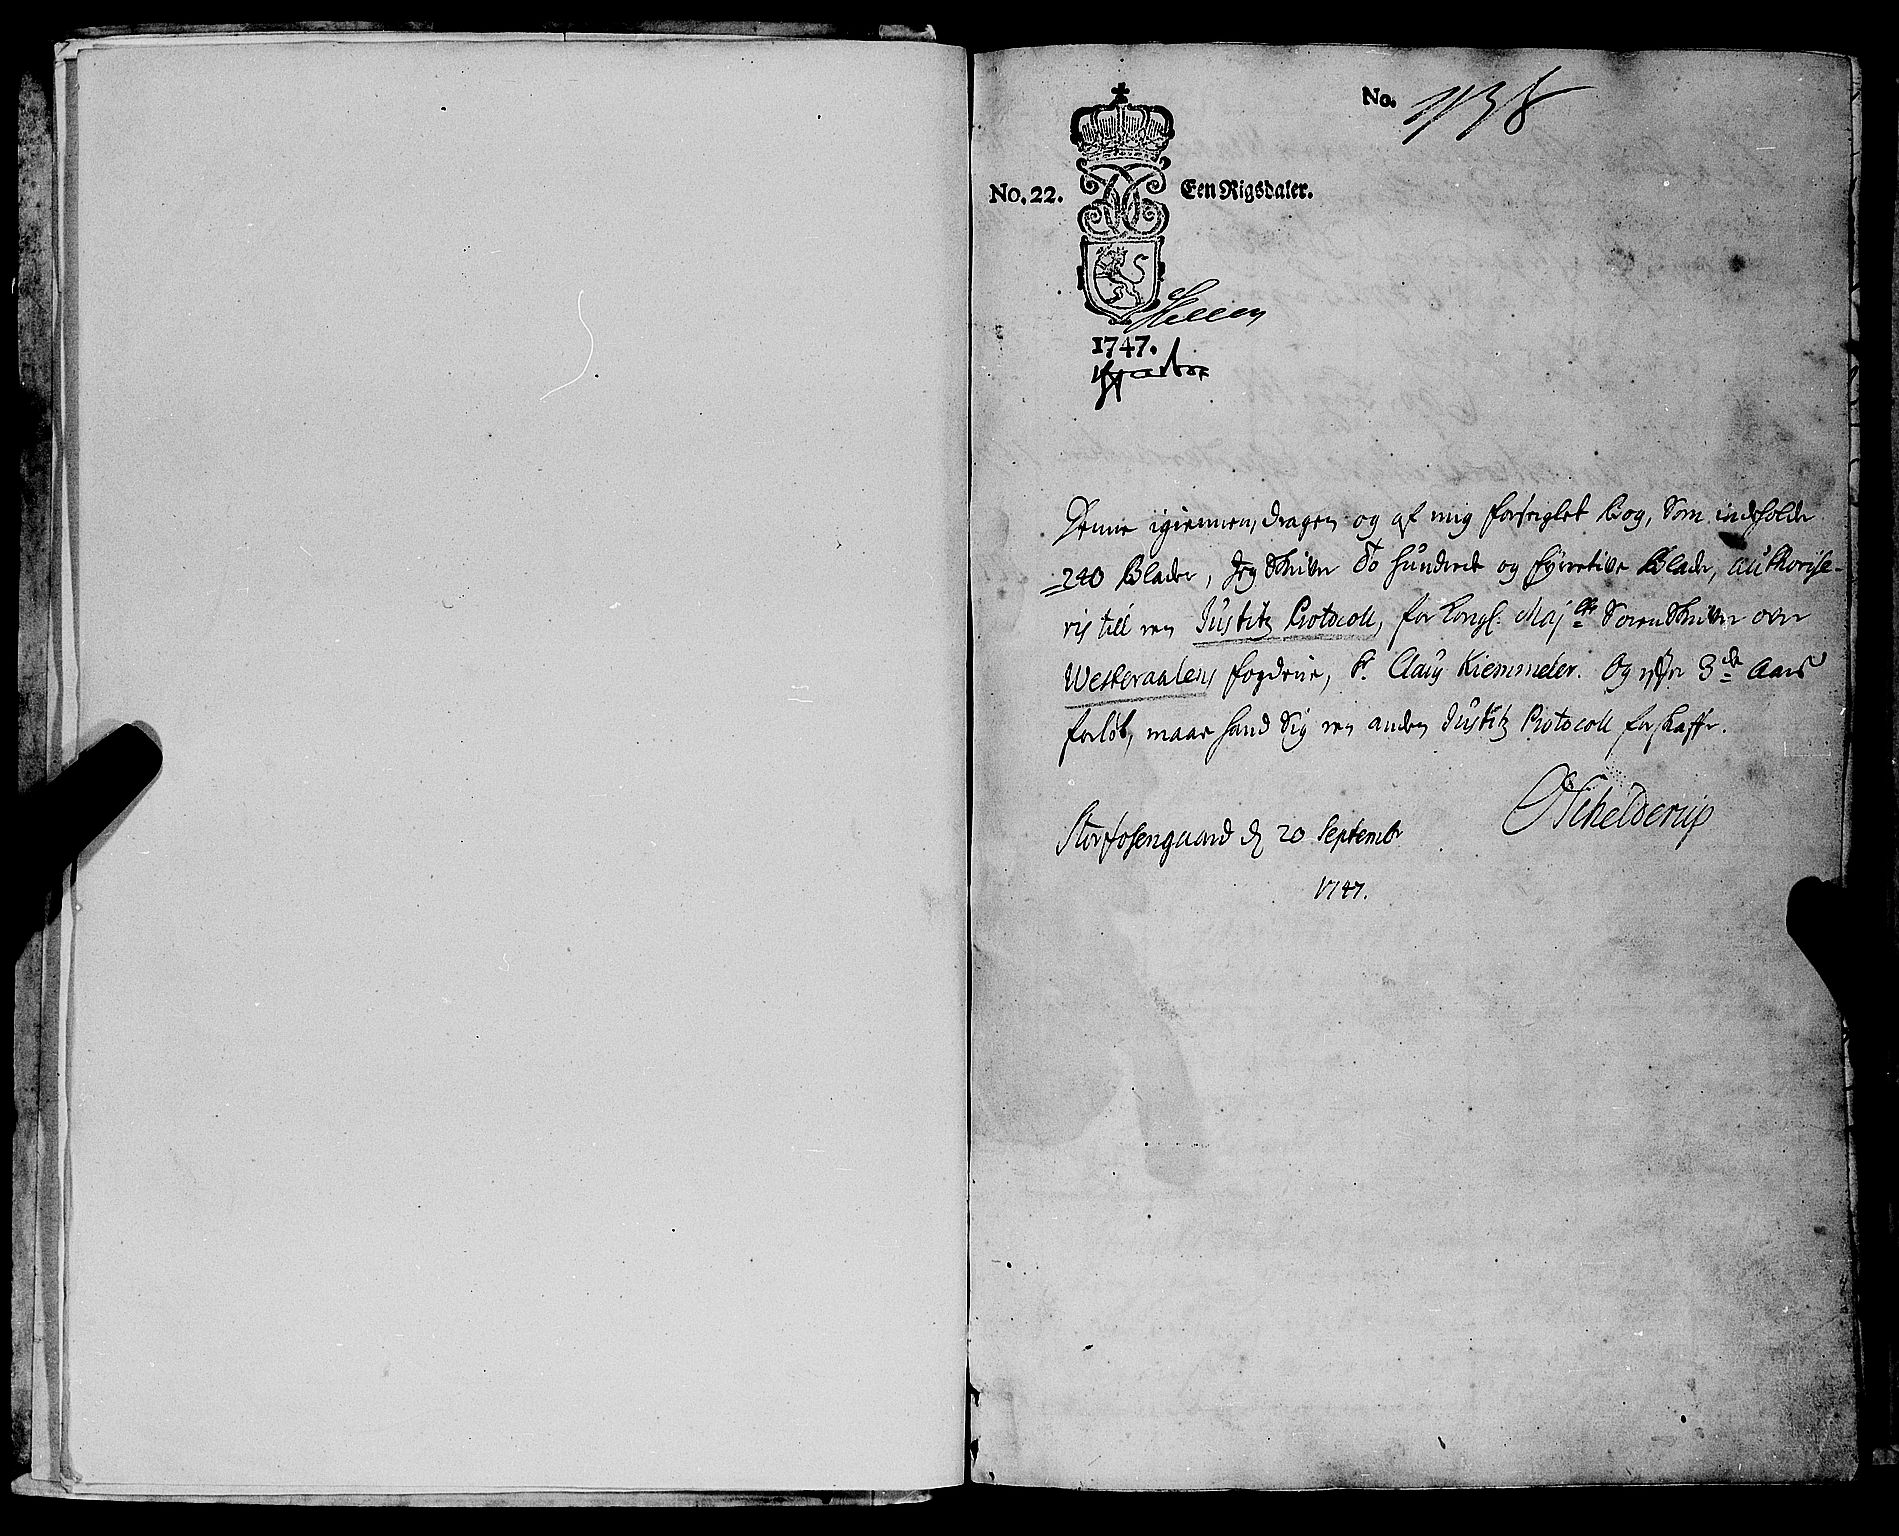 No. 1138
No. 22. Een Rigsdaler.
1747.
Denne igiennem dragen og af mig forseiglet Bog, Som indeholder
240 Blader, Jeg Skriver To Hundrede og fyrretive Blade, authorise-
ris till een Justitz Protocoll, for Kongl: Maj:tts Sorenskriver over
Westeraalens fogderie, Sr. Claus Kiemmeler. Og efter 3de Aars
forløb, maae hand Sig een anden Justitz Protocoll forskaffe.
Schelderup
Storfosengaard d 20 Septembr
1747.